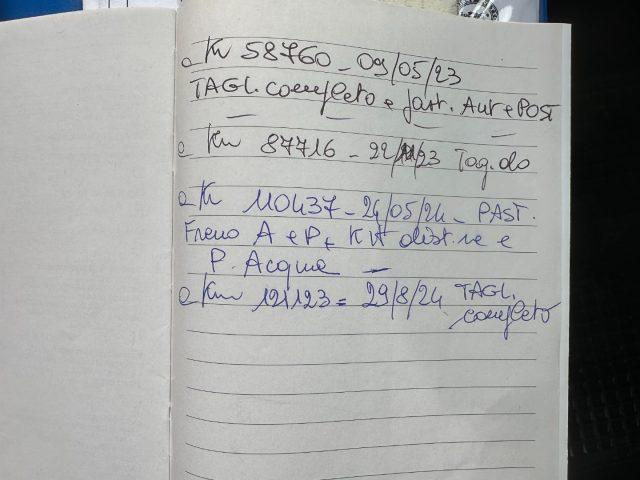 a Km 58760 - 09/05/23
TAGL. completo e past. Ant e POST
a Km 87716 - 22/11/23 Tag.do
a Km 110437 - 24/05/24 - PAST.
Freno A e P + Kit dist.ne e
P. Acqua -
a Km 121123 = 29/8/24 TAGL.
completo